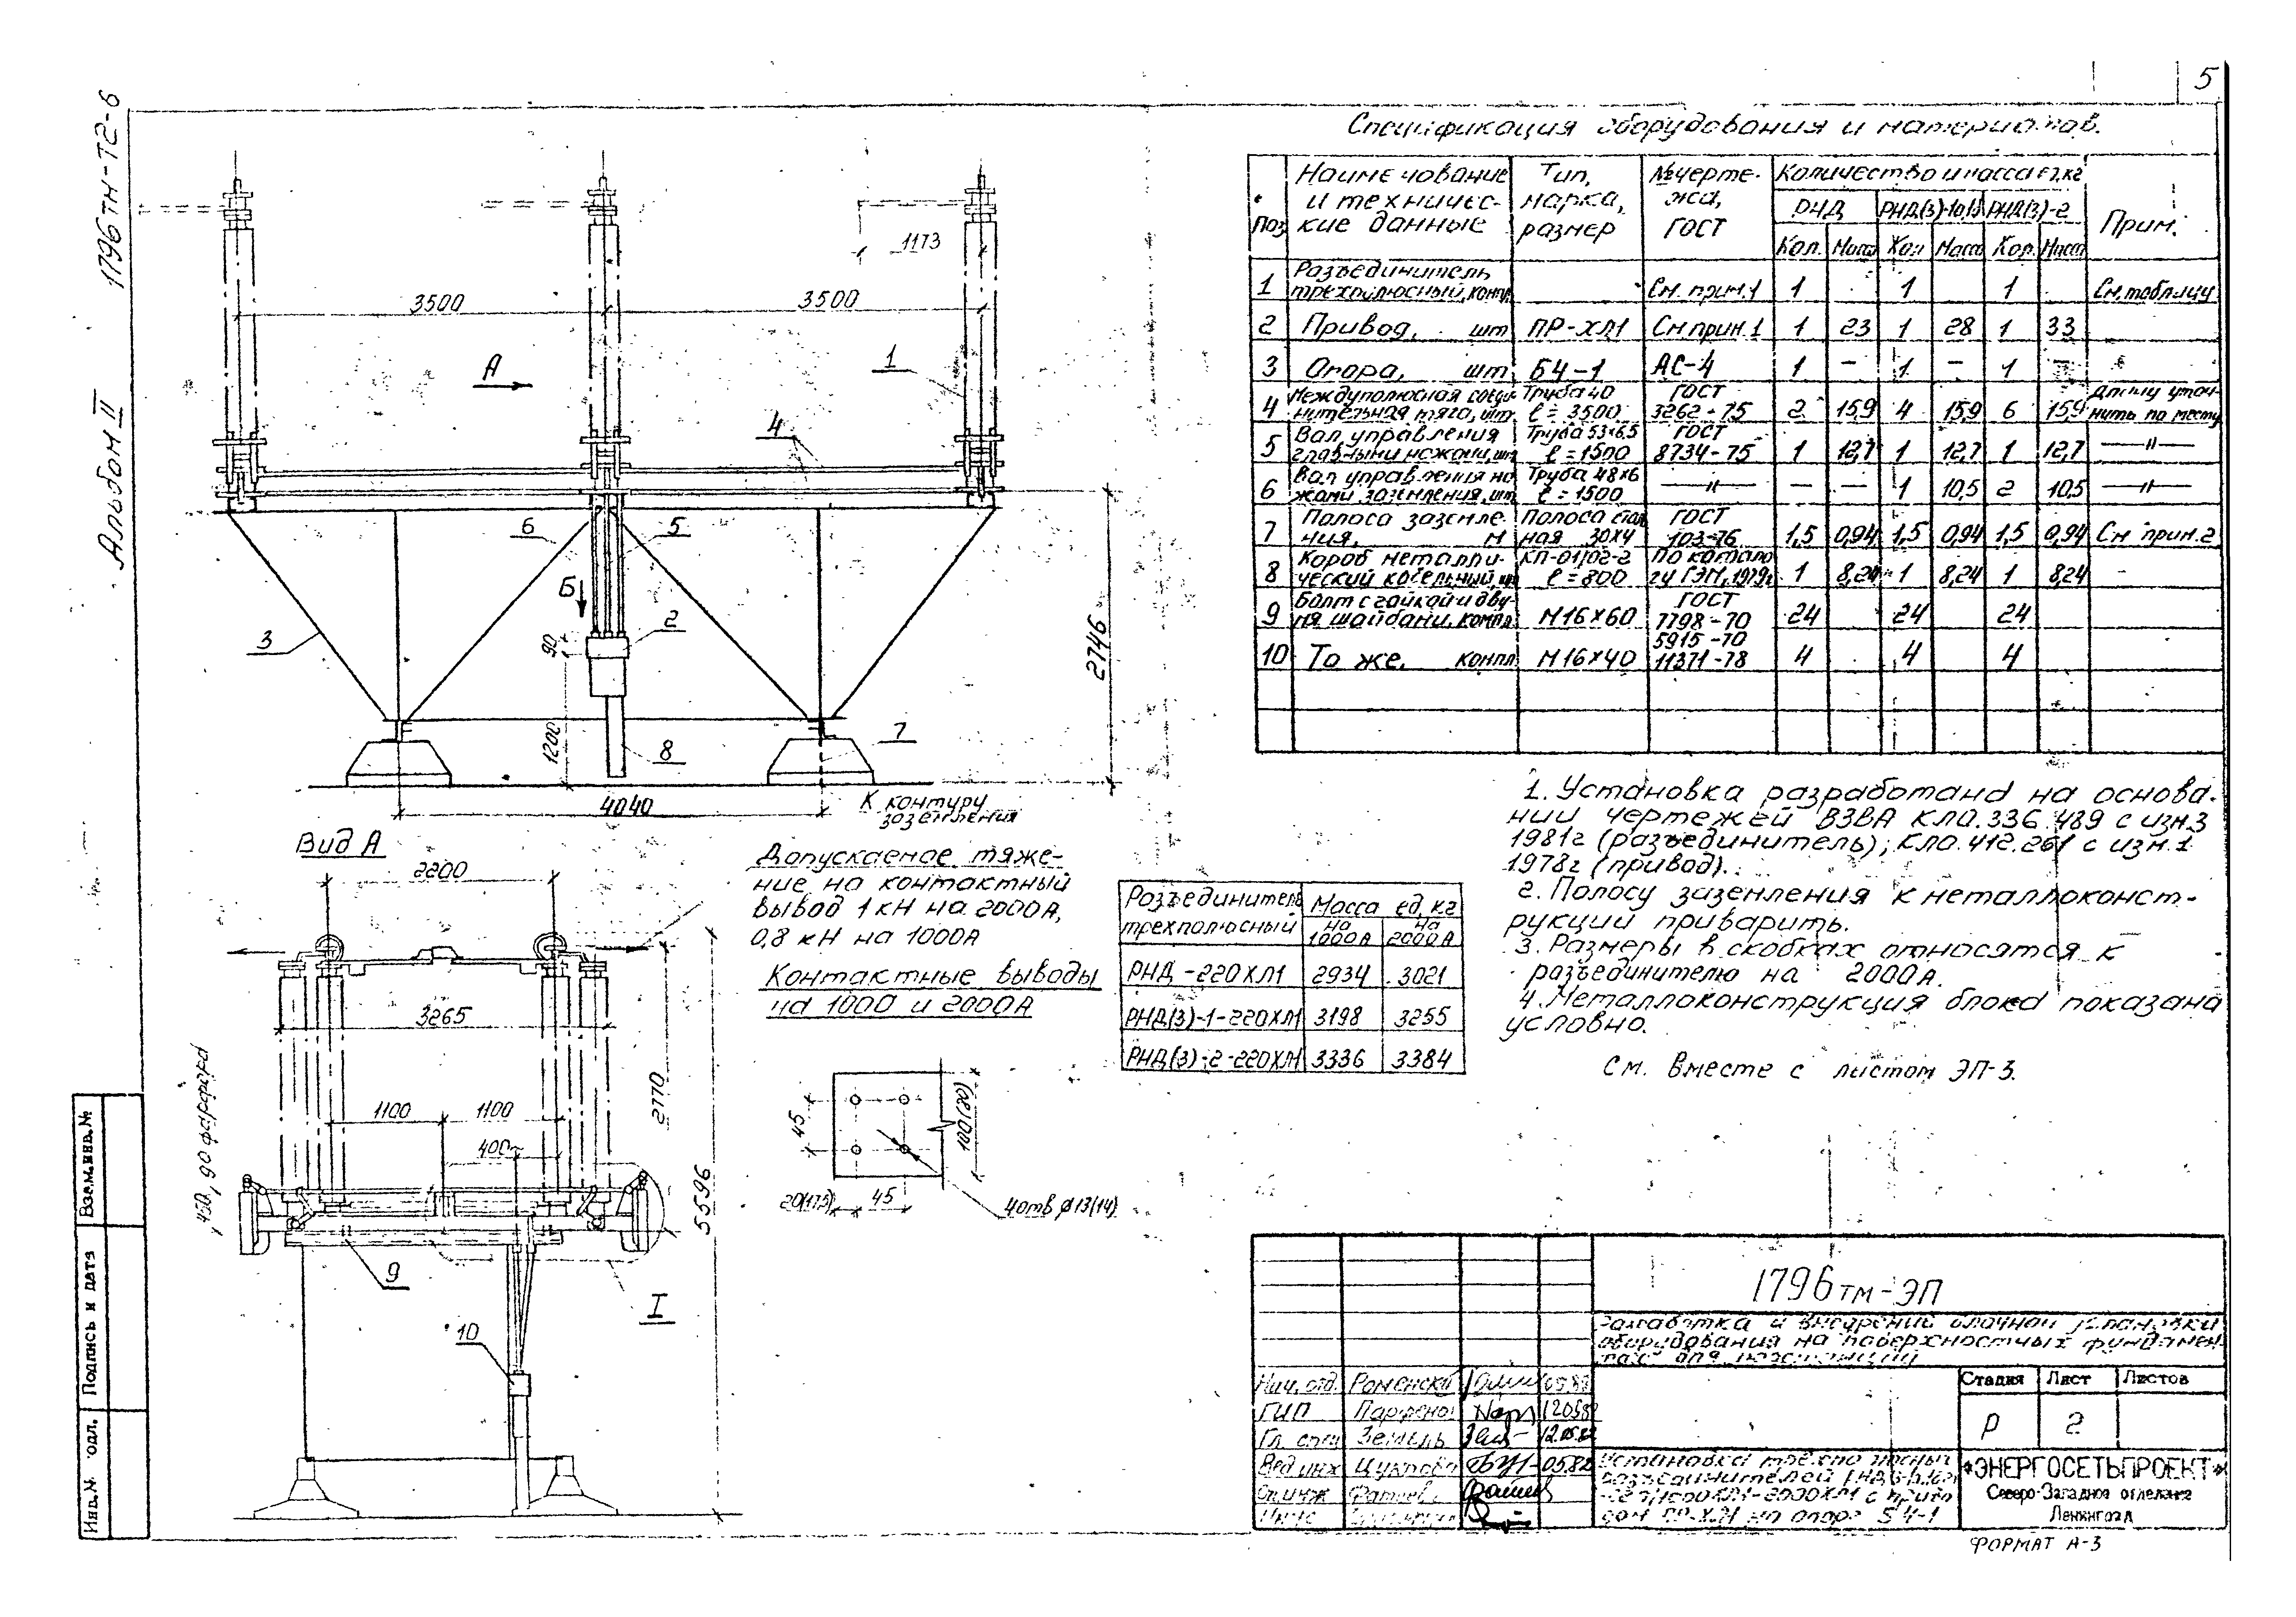 5
1796тм-Т2-6
Альбом II
Спецификация оборудования и материалов.
Поз
Наименование и технические данные
Тип, марка, размер
№ чертежа, ГОСТ
Количество и масса ед, кг
РНД
РНД(З)-1а,1б
РНД(З)-2
Прим.
Кол. Масса Кол Масса Кол. Масса
1 Разъединитель трехполюсный, компл. См. прим.1 1 1 1 См. таблицу
2 Привод, шт ПР-ХЛ1 См прим.1 1 23 1 28 1 33
3 Опора, шт Б4-1 АС-4 1 — 1 — 1 —
4 Междуполюсная соединительная тяга, шт Труба 40 ℓ=3500 ГОСТ 3262-75 2 15,9 4 15,9 6 15,9 Длину уточнить по месту
5 Вал управления главными ножами, шт Труба 53х6,5 ℓ=1500 ГОСТ 8734-75 1 12,7 1 12,7 1 12,7 —"—
6 Вал управления ножами заземления, шт Труба 48х6 ℓ=1500 —"— — — 1 10,5 2 10,5 —"—
7 Полоса заземления, м Полоса стальная 30х4 ГОСТ 103-76 1,5 0,94 1,5 0,94 1,5 0,94 См прим.2
8 Короб металлический кабельный, шт КП-01/02-2 ℓ=800 По каталогу ГЭМ, 1979г 1 8,24 1 8,24 1 8,24
9 Болт с гайкой и двумя шайбами, компл М16х60 ГОСТ 7798-70 24 24 24
10 То же, компл М16х40 5915-70 11371-78 4 4 4
1173
3500 3500
А
1
4
6 5
Б
2
3
90
2746
1200
7
8
4040
К контуру
заземления
Вид А
2200
3265
1100 1100
400
2770
5596
9
10
I
Допускаемое тяже-
ние на контактный
вывод 1 кН на 2000А,
0,8 кН на 1000А
Контактные выводы
на 1000 и 2000А
45
100(80)
20(17,5) 45
4отв ⌀13(14)
Разъединитель трехполюсный Масса ед, кг
на 1000А на 2000А
РНД-220ХЛ1 2934 3021
РНД(З)-1-220ХЛ1 3198 3255
РНД(З)-2-220ХЛ1 3336 3384
1. Установка разработана на основа-
нии чертежей ВЗВА КЛ0.336.489 с изм.3
1981г (разъединитель), КЛ0.412.261 с изм.1
1978г (привод).
2. Полосу заземления к металлоконст-
рукции приварить.
3. Размеры в скобках относятся к
разъединителю на 2000А.
4. Металлоконструкция блока показана
условно.
См. вместе с листом ЭП-3.
1796тм-ЭП
Разработка и внедрение блочной установки
оборудования на поверхностных фундамен-
тах для подстанций
Стадия Лист Листов
Р 2
Нач. отд. Роменский 05.82
ГИП Парфенов 12.05.82
Гл. спец Земель 12.05.82
Вед инж 05.82
Установка трехполюсных
разъединителей
дом ПР-ХЛ1 на опоре Б4-1
«ЭНЕРГОСЕТЬПРОЕКТ»
Северо-Западное отделение
Ленинград
ФОРМАТ А-3
Взам.инв.№
Подпись и дата
Инв.№ подл.